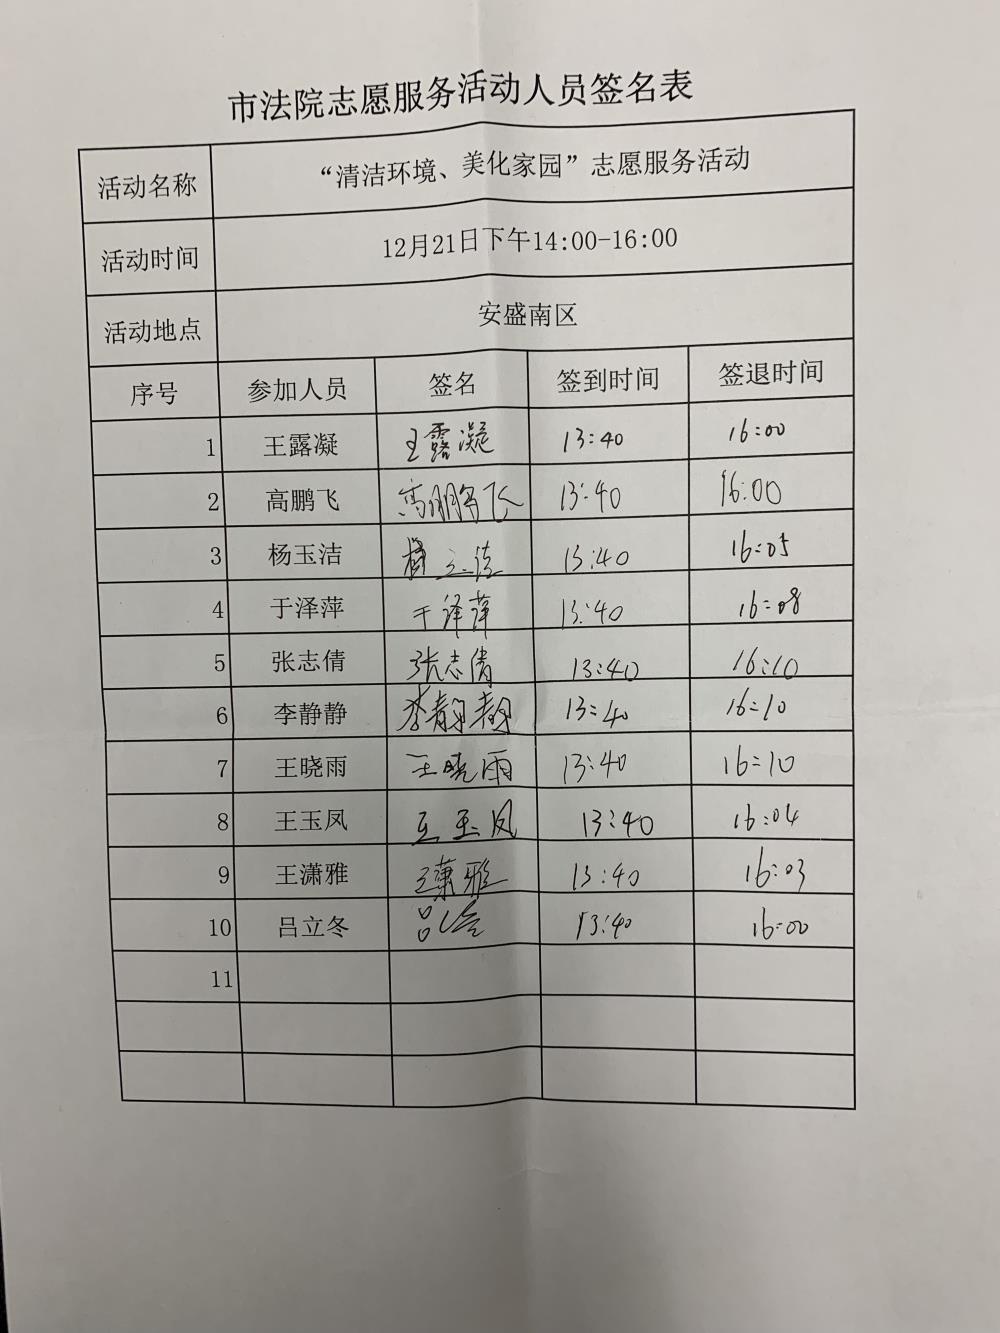 市法院志愿服务活动人员签名表
活动名称 “清洁环境、美化家园”志愿服务活动
活动时间 12月21日下午14:00-16:00
活动地点 安盛南区
序号 参加人员 签名 签到时间 签退时间
1 王露凝 王露凝 13:40 16:00
2 高鹏飞 高鹏飞 13:40 16:00
3 杨玉洁 杨玉洁 13:40 16:05
4 于泽萍 于泽萍 13:40 16:08
5 张志倩 张志倩 13:40 16:10
6 李静静 李静静 13:40 16:10
7 王晓雨 王晓雨 13:40 16:10
8 王玉凤 王玉凤 13:40 16:04
9 王潇雅 王潇雅 13:40 16:03
10 吕立冬 吕立冬 13:40 16:00
11